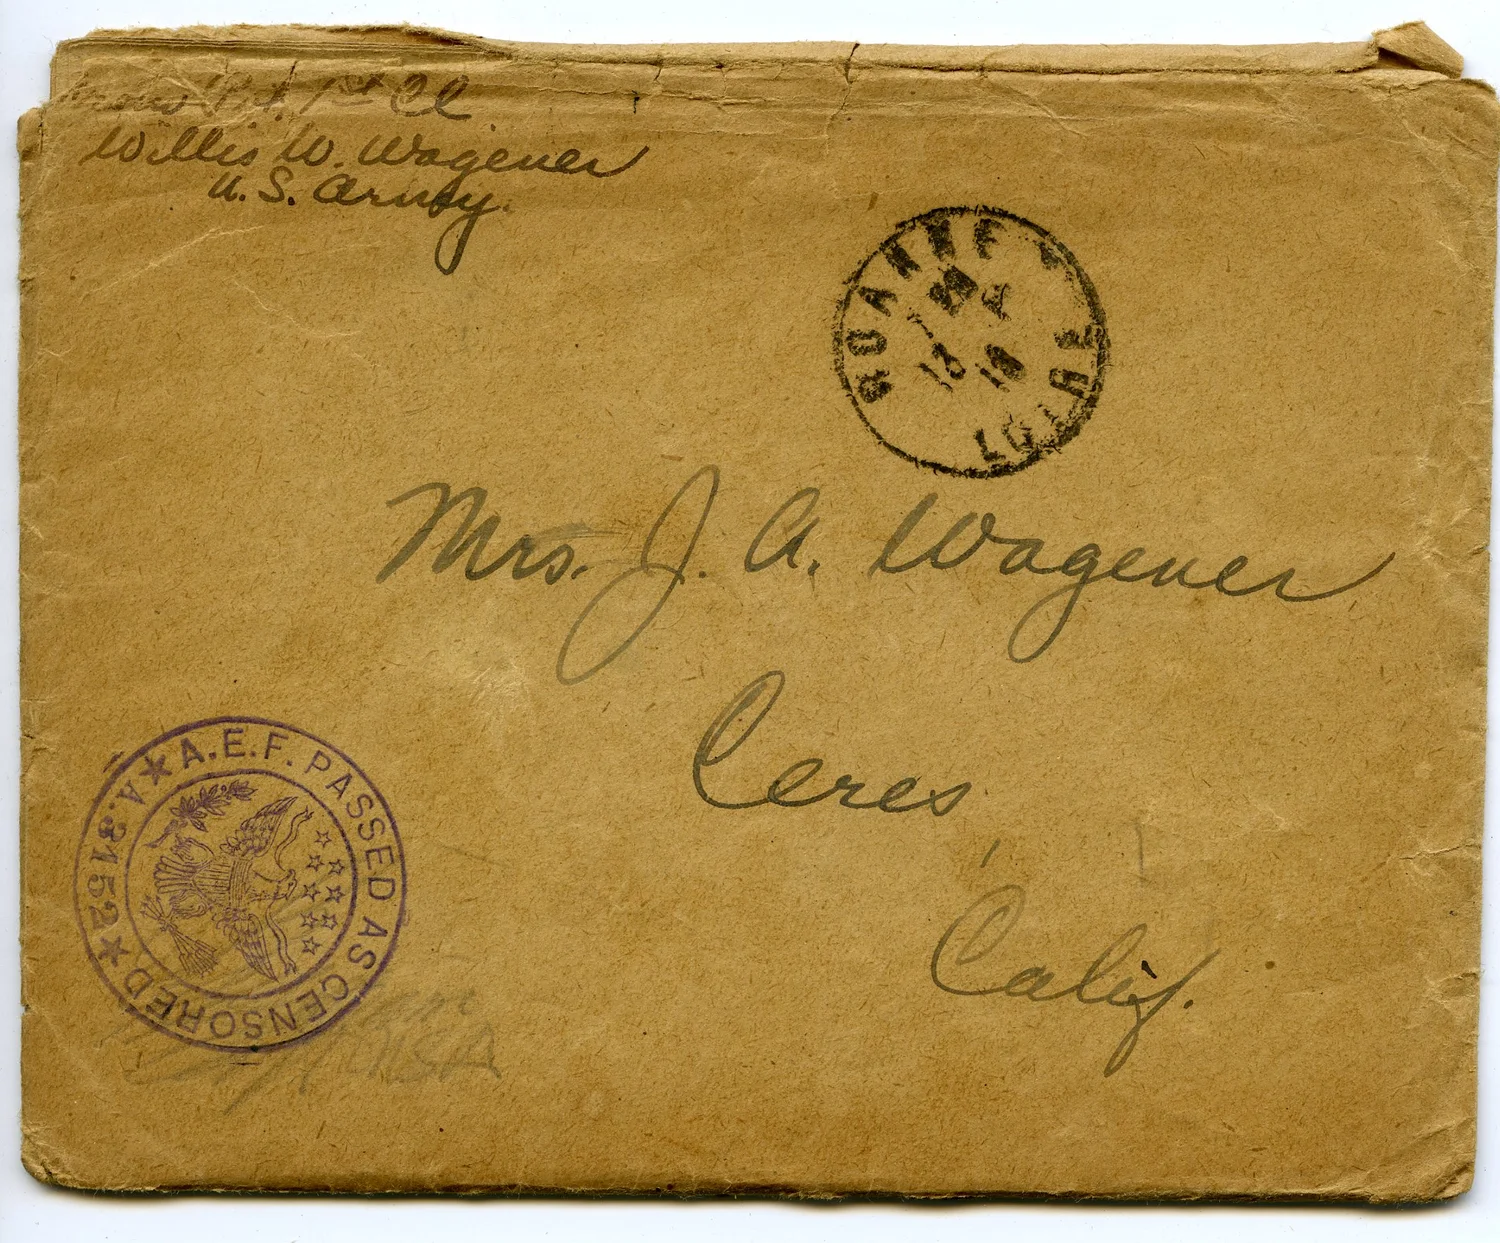 From Pvt. 1st Cl.
Willis W. Wagener
U.S. Army.
ROANNE
LOIRE
13
Mrs. J. A. Wagener
Ceres
Calif.
★ A.E.F. PASSED AS CENSORED ★ A.3152